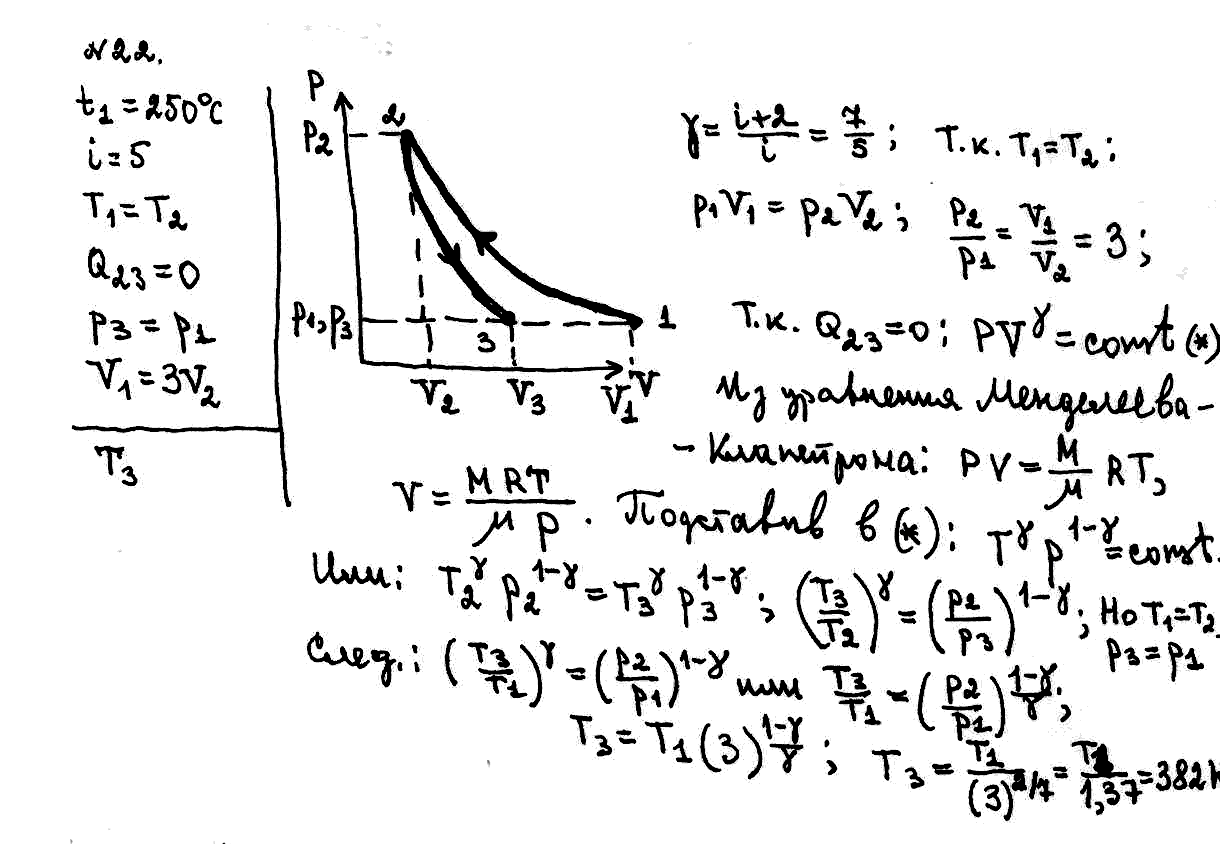 №22.
t₁ = 250°C
i = 5
T₁ = T₂
Q₂₃ = 0
p₃ = p₁
V₁ = 3V₂
T₃
P
p₂
2
p₁, p₃
3
1
V₂ V₃ V₁ V
γ = (i+2)/i = 7/5 ; Т.к. T₁ = T₂ ;
p₁V₁ = p₂V₂ ; p₂/p₁ = V₁/V₂ = 3 ;
Т.к. Q₂₃ = 0 ; PV^γ = const (*)
Из уравнения Менделеева-
- Клапейрона: PV = M/μ RT,
V = MRT/μP . Подставив в (*) : T^γ P^(1-γ) = const.
Или: T₂^γ p₂^(1-γ) = T₃^γ p₃^(1-γ) ; (T₃/T₂)^γ = (p₂/p₃)^(1-γ) ; Но T₁ = T₂
p₃ = p₁
След.: (T₃/T₁)^γ = (p₂/p₁)^(1-γ) или T₃/T₁ = (p₂/p₁)^((1-γ)/γ) ;
T₃ = T₁(3)^((1-γ)/γ) ; T₃ = T₁/(3)^(2/7) = T₁/1,37 = 382К